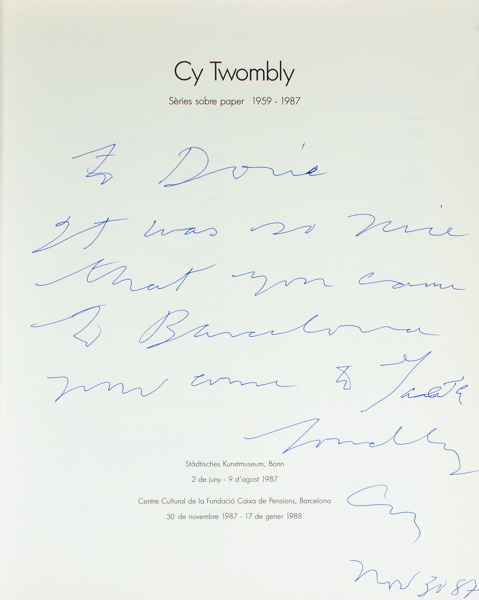 Cy Twombly
Sèries sobre paper 1959 - 1987
To Dorie
It was so nice
that you came
to Barcelona
now come to Gaeta
Fondly
Städtisches Kunstmuseum, Bonn
2 de juny - 9 d'agost 1987
Centre Cultural de la Fundació Caixa de Pensions, Barcelona
30 de novembre 1987 - 17 de gener 1988
Cy
Nov 30 87